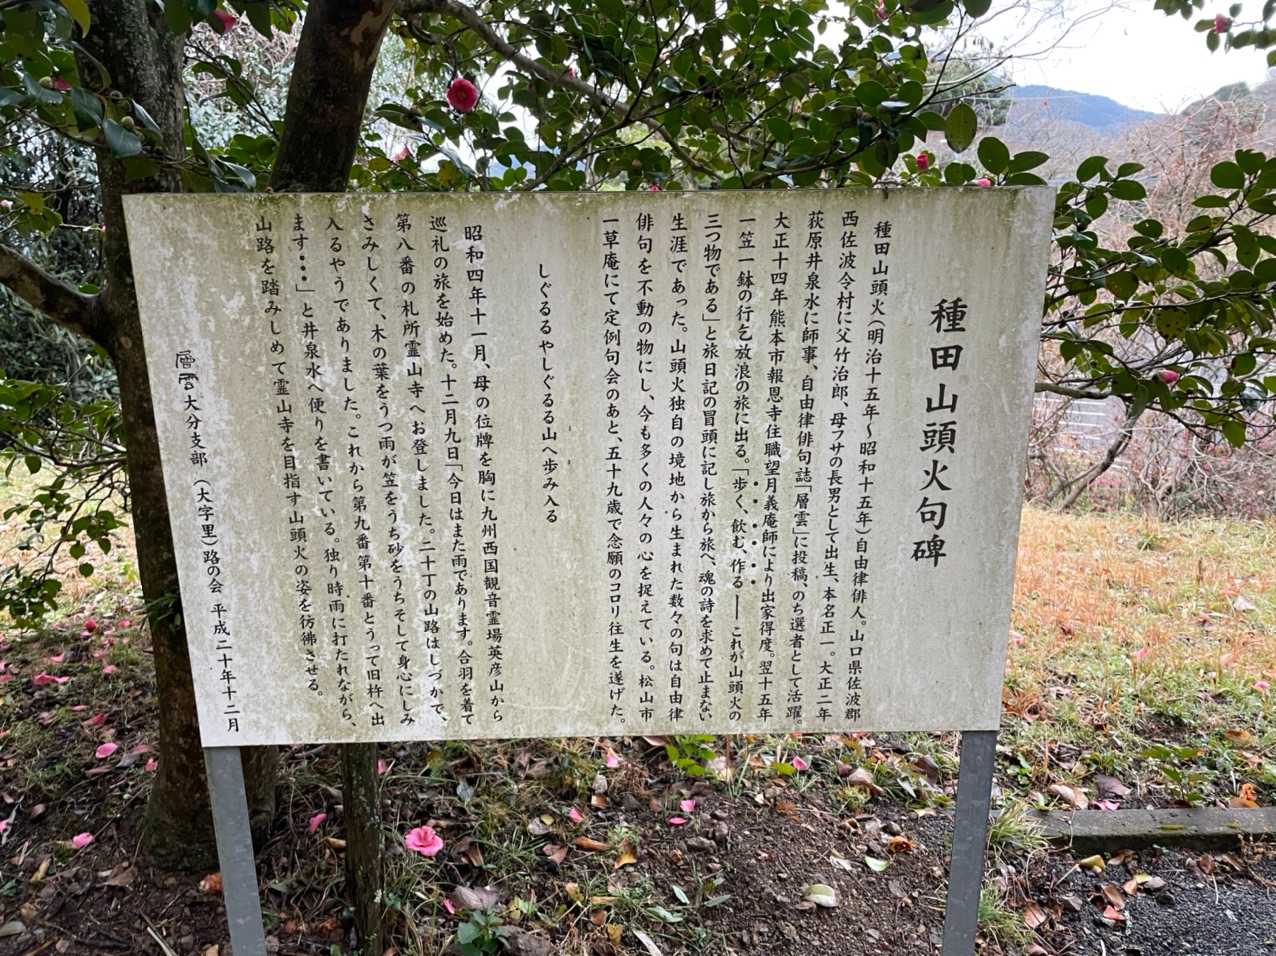 種田山頭火句碑
種田山頭火(明治十五年～昭和十五年)自由律俳人。山口県佐波郡
西佐波令村に父竹治郎、母フサの長男として出生、本名正一。大正二年
荻原井泉水に師事、自由律俳句誌「層雲」に投稿、のち選者として活躍。
大正十四年熊本市報恩寺住職望月義庵師により出家得度。翌十五年
一笠一鉢の行乞放浪の旅に出る。「歩く、飲む、作る―これが山頭火の
三つ物である」と旅日記の冒頭に記し、旅から旅へ、魂の詩を求めて止まない
生涯であった。山頭火独自の境地から生まれた数々の句は自由律
俳句を不動の物にし、今も多くの人々の心を捉えている。松山市
一草庵にて定例句会のあと、五十九歳で念願のコロリ往生を遂げた。
しぐるるやしぐるる山へ歩み入る
昭和四年十一月、母の位牌を胸に九州西国観音霊場英彦山から
巡礼の旅を始めた。十二月九日「今日はまた雨であります。合羽を着て
第八番の札所霊山寺へお登しました。二十丁の山路はしづかで、
さみしくて、木の葉をうつ雨が笠をうち砂をうちそして身心にしみ
入るやうでありました。これから第九番第十番とうつて旧杵へ出
ます・・・」と井泉水へ便りを書いている。独り時雨に打たれながら、
山路を踏みしめて霊山寺を目指す山頭火の姿を彷彿させる。
層雲大分支部(大字里)路の会 平成二十年十二月